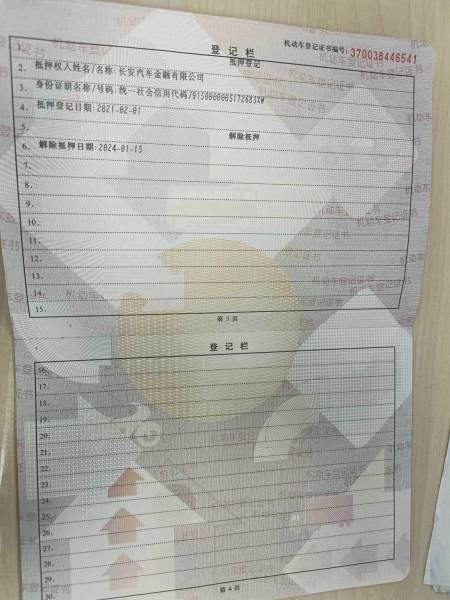 登记栏 机动车登记证书编号: 370038446541
1. 抵押登记
2. 抵押权人姓名/名称:长安汽车金融有限公司
3. 身份证明名称/号码:统一社会信用代码/91500000051726​83XW
4. 抵押登记日期:2021-02-01
5. 解除抵押
6. 解除抵押日期:2024-01-15
7.
8.
9.
10.
11.
12.
13.
14.
15.
第 3 页
登记栏
16.
17.
18.
19.
20.
21.
22.
23.
24.
25.
26.
27.
28.
29.
30.
第 4 页